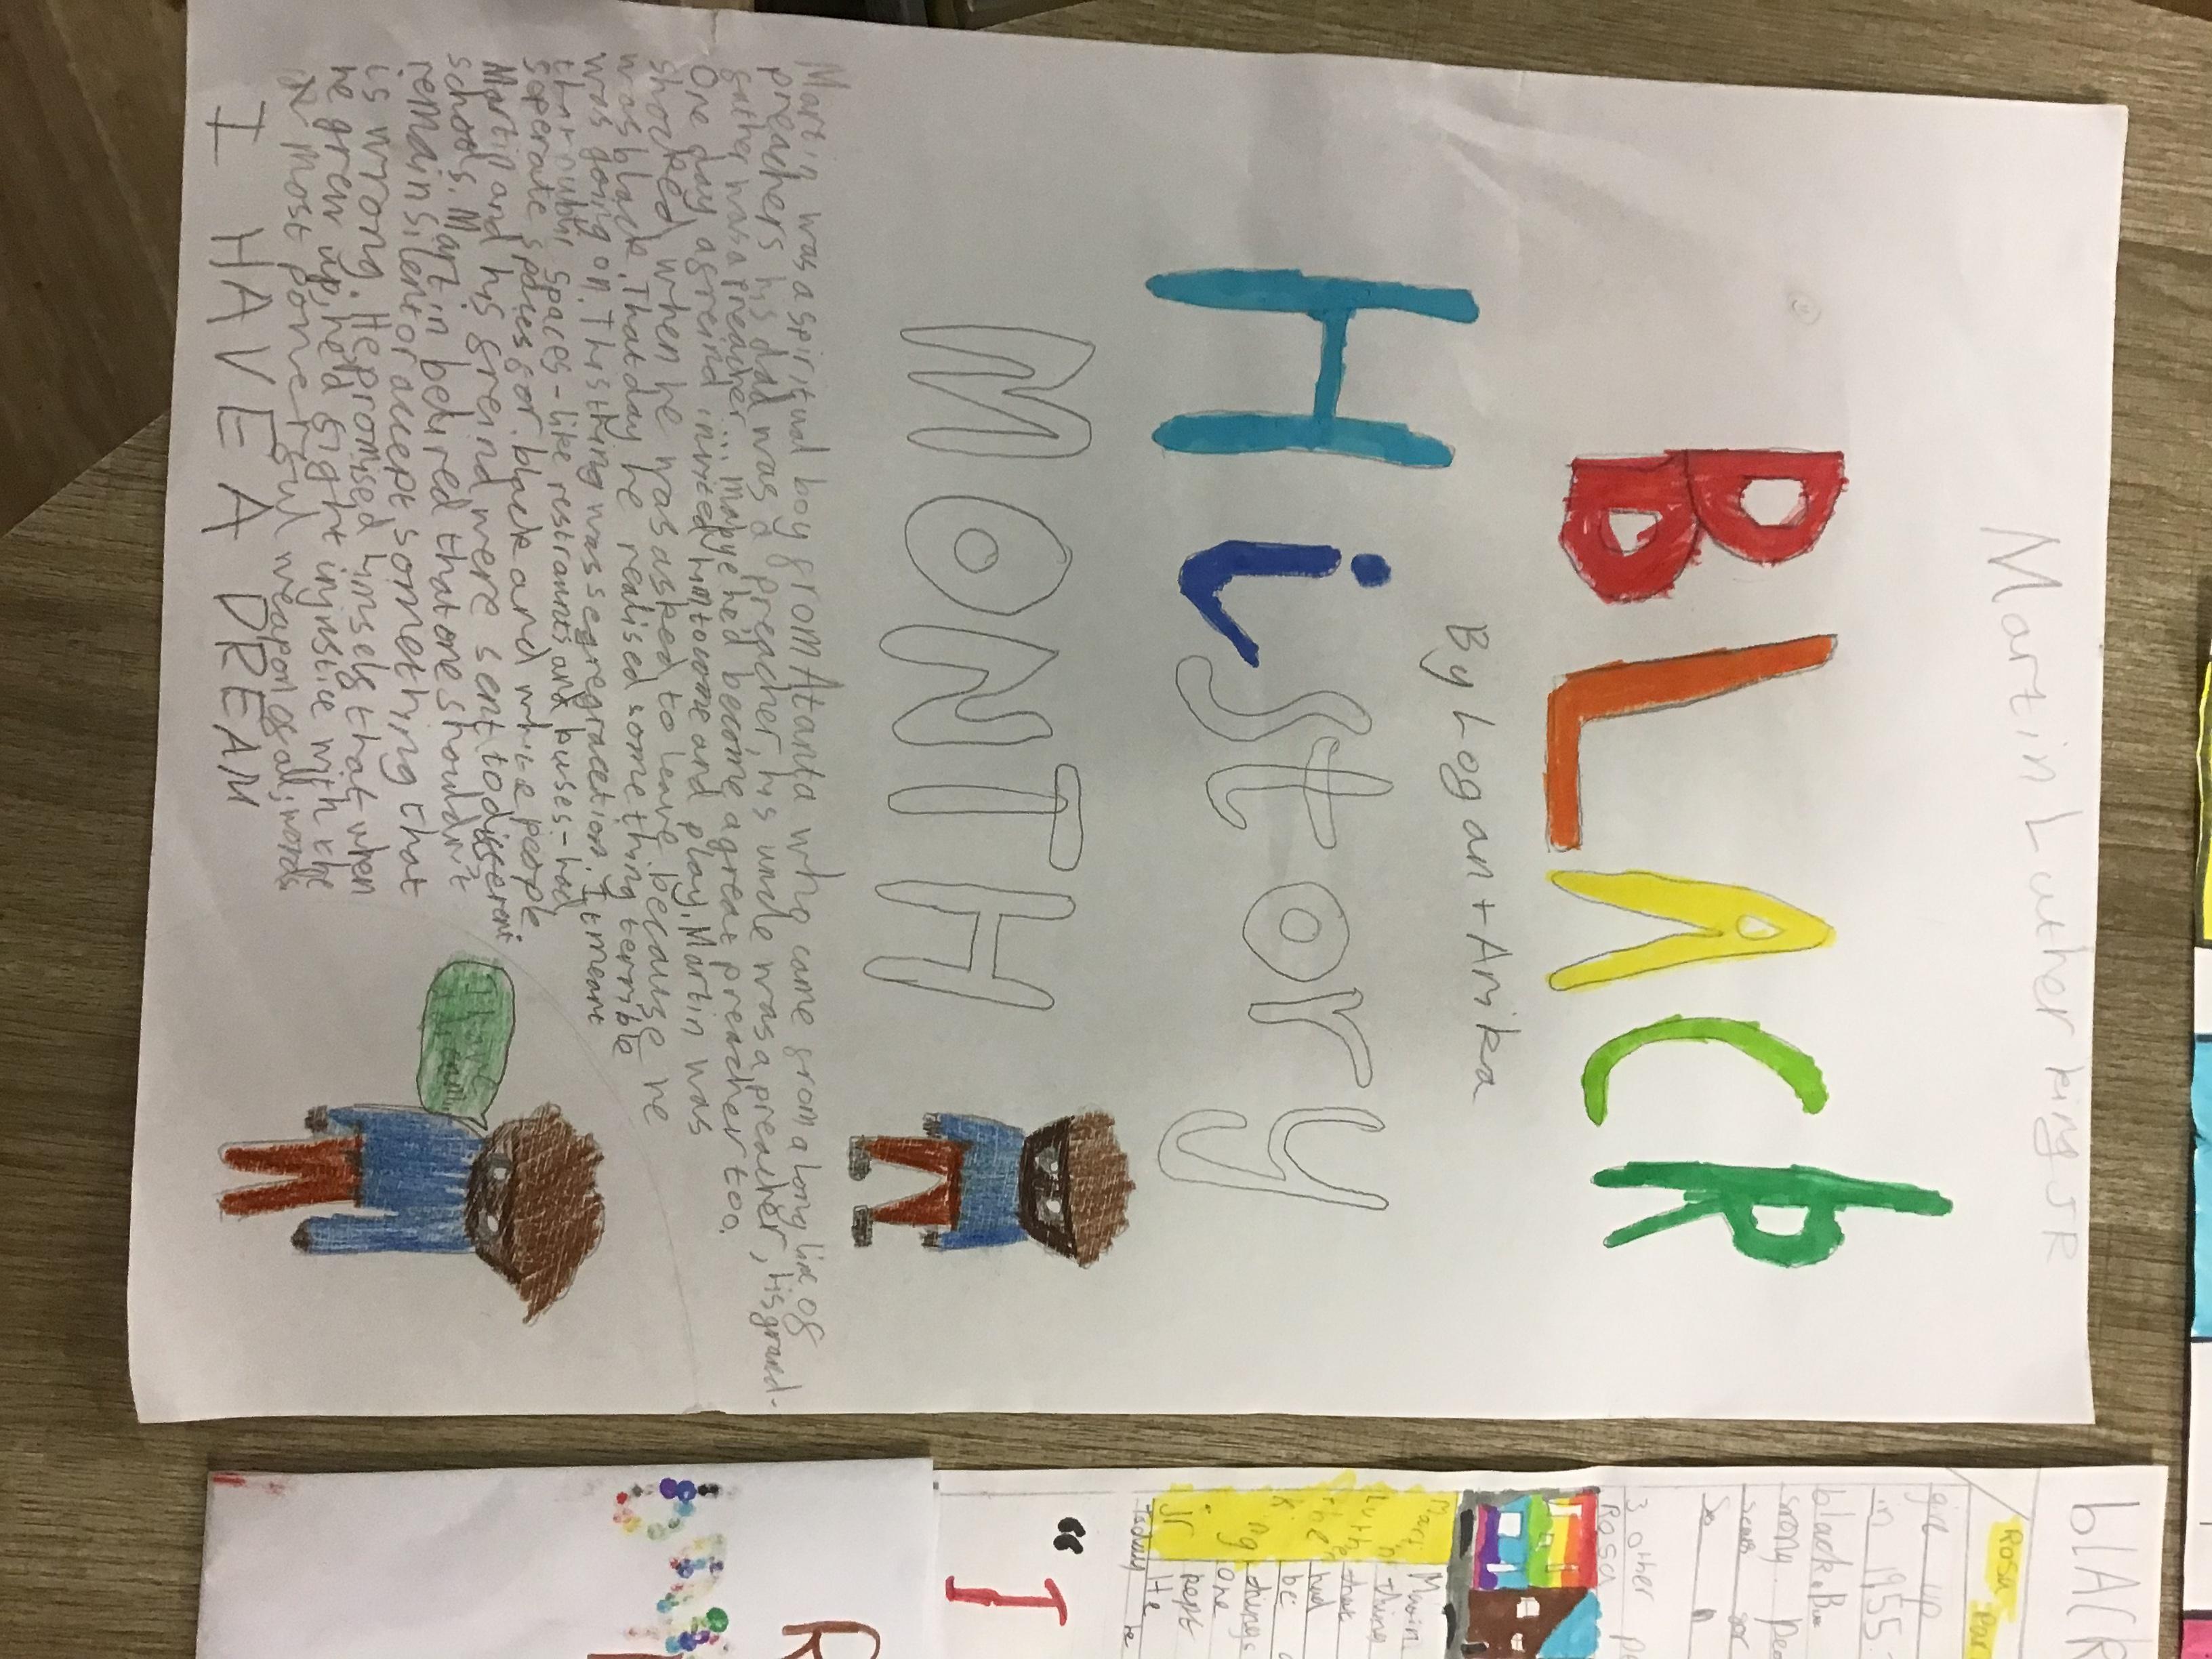 Martin Luther king JR
BLACK
By Logan + Amika
History
MONTH
Martin was a spiritual boy from Atanta who came from a long line of
preachers his dad was a preacher, his uncle was a preacher, his grand-
father was a preacher... maybye he'd become a great preacher too.
One day a freind invited him to come and play. Martin was
shocked when he was asked to leave because he
was black. That day he realised something terrible
was going on. This thing was segregracetion. It meant
that public spaces - like restraunts and buses - had
seperate spaces for black and white people
Martin and his freind were sent to different
schools. Martin beleired that one shouldn't
remain silent or accept something that
is wrong. He promised himself that when
he grew up, he'd fight injustice with the
most powerful weapon of all, words
I HAVE A DREAM
I have
a dream
blACK
Rosa Par
give up
in 1955.
black. Bu
strong. Peo
So
3 other pe
Rosa
Martin
Luther
King
jr
thing
that
had
be
things
one
kept
He
" I
R